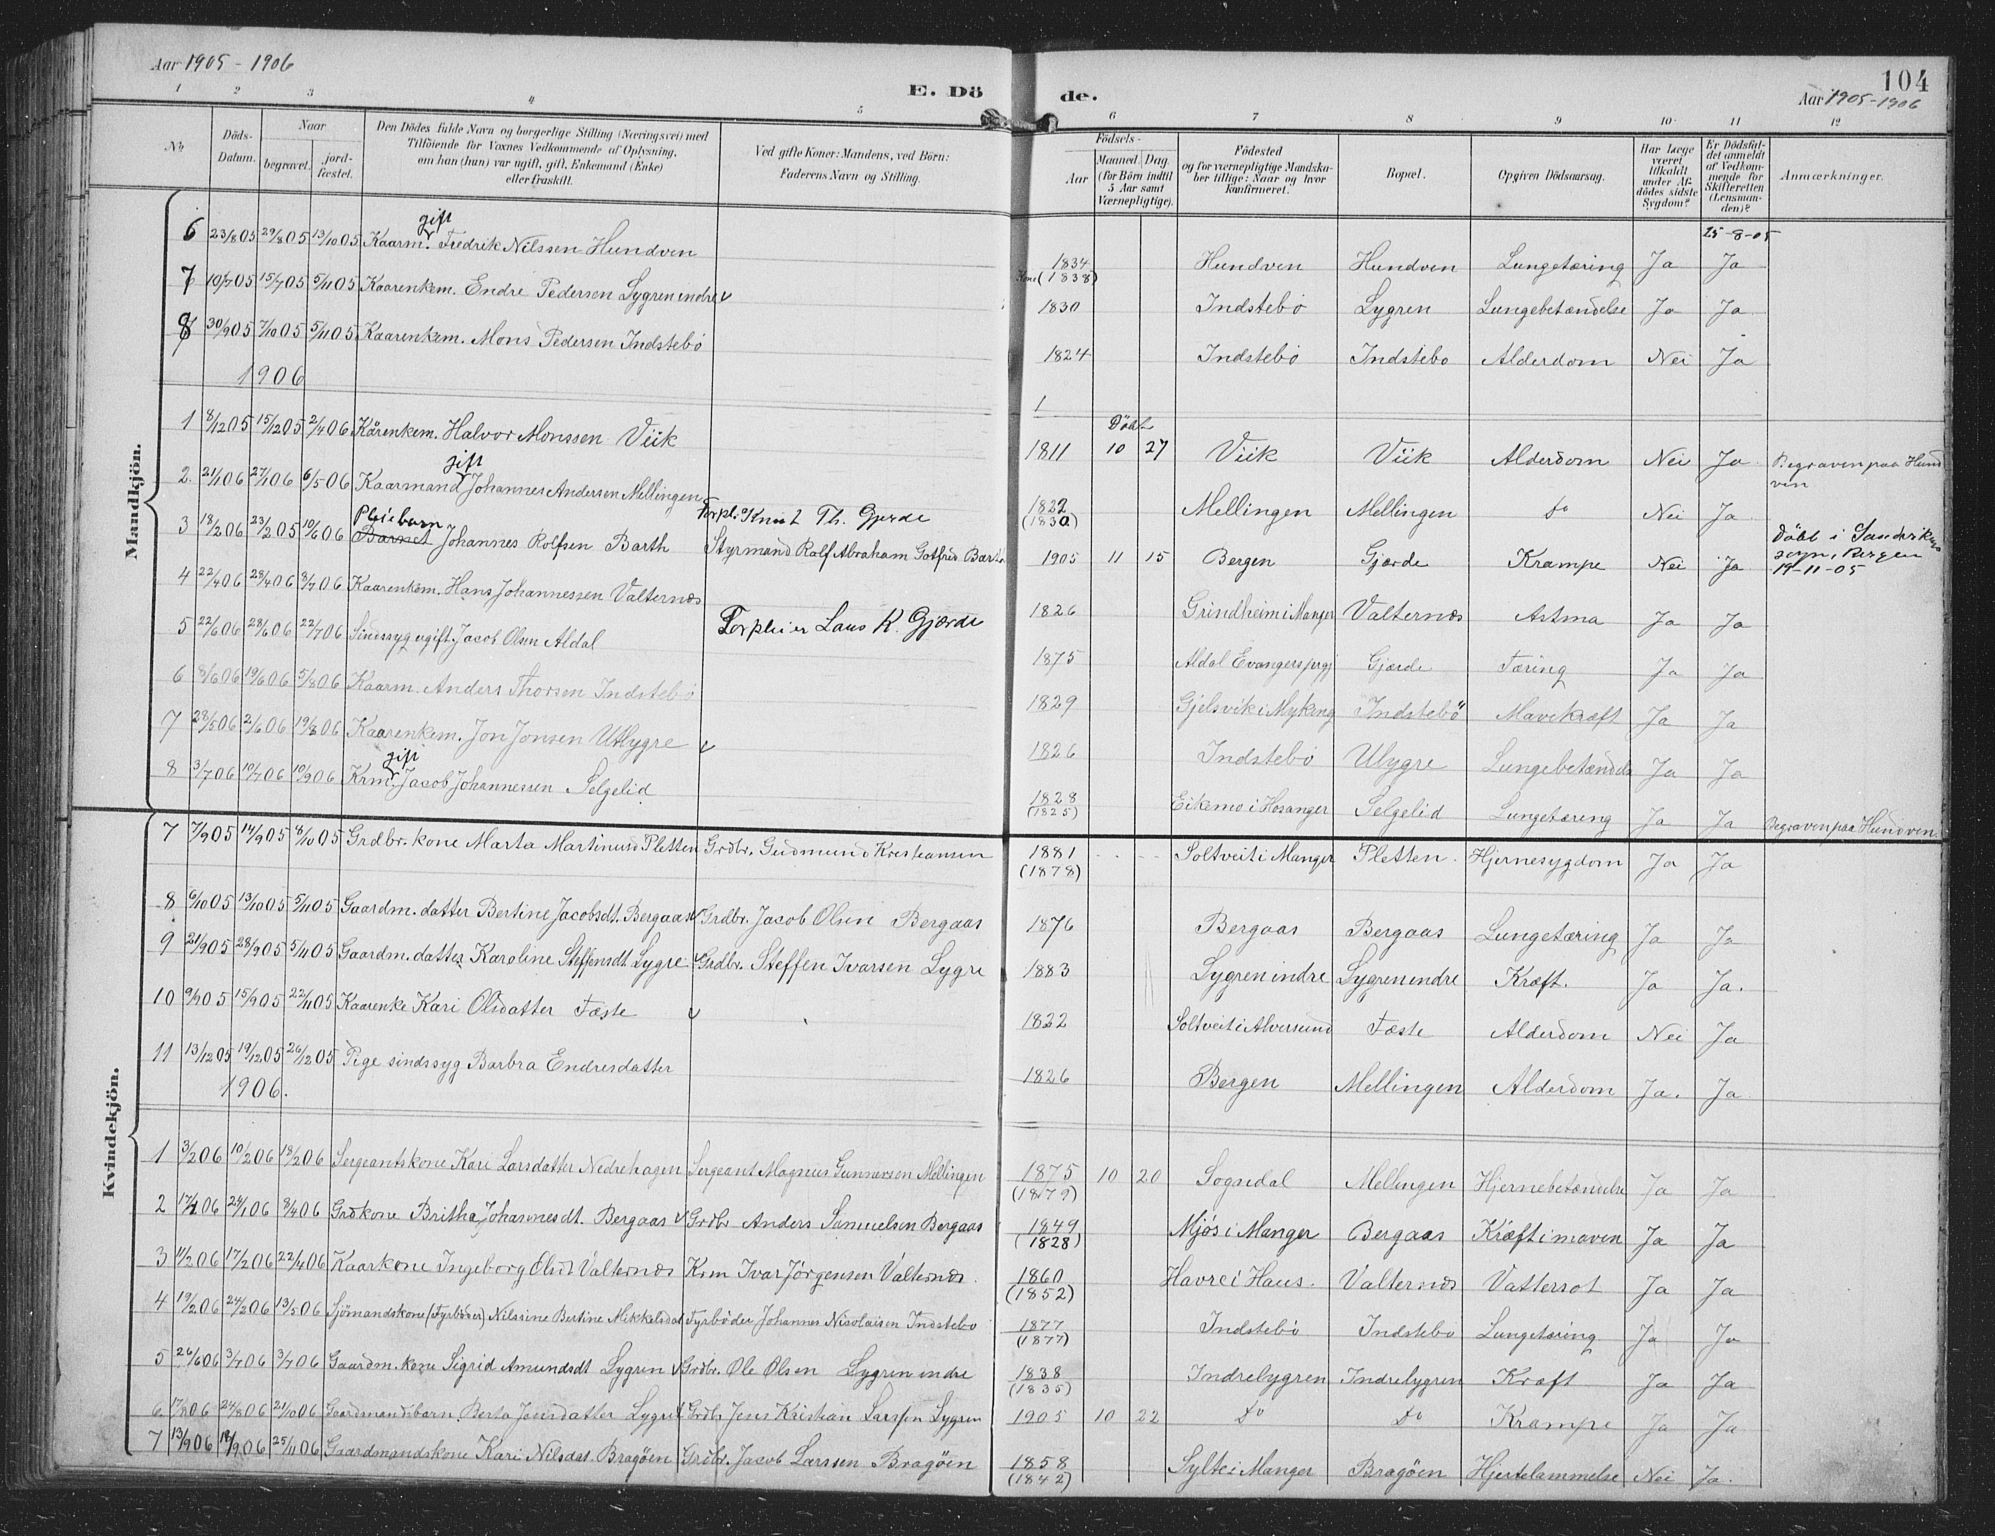 Aar 1905 - 1906
E. Dö de.
104
Aar 1905-1906
1 2 3 4 5 6 7 8 9 10 11 12
No
Döds-Datum.
Naar
begravet.
jord-fæstet.
Den Dödes fulde Navn og borgerlige Stilling (Næringsvei) med
Tilföiende for Voxnes Vedkommende af Oplysning,
om han (hun) var ugift, gift, Enkemand (Enke)
eller fraskilt.
Ved gifte Koner: Mandens, ved Börn:
Faderens Navn og Stilling.
Födsels-
Aar
Maaned Dag
(for Börn indtil
5 Aar samt
Værnepligtige).
Födested
og for værnepligtige Mandska-
ber tillige: Naar og hvor
konfirmeret.
Bopæl.
Opgiven Dödsaarsag.
Har Læge
været
tilkaldt
under Af-
dödes sidste
Sygdom?
Er Dödsfal-
det anmeldt
af Vedkom-
mende for
Skifteretten
(Lensman-
den)?
Anmærkninger.
Mandkjön.
25-8-05
6 23/8 05 29/8 05 13/10 05 Kaarm. gift Fredrik Nilssen Hundven 1834 Kone (1838) Hundven Hundven Lungetæring Ja Ja
7 10/7 05 15/7 05 5/11 05 Kaarenkem. Endre Pedersen Lygren indre v 1830 Indstebö Lygren Lungebetændelse Ja Ja
8 30/9 05 7/10 05 5/11 05 Kaarenkem. Mons Pedersen Indstebö 1824 Indstebö Indstebo Alderdom Nei Ja
1906
1 8/12 05 15/12 05 2/4 06 Kårenkem. Halvor Monssen Viik 1811 Döbt 10 27 Viik Viik Alderdom Nei Ja Begraven paa Hundven
2. 21/1 06 27/1 06 6/5 06 Kaarmand gift Johannes Andersen Mellingen 1822 (1830) Mellingen Mellingen do Nei Ja
3 18/2 06 23/2 05 10/6 06 Pleiebarn Barnet Johannes Rolfsen Barth Forpl. Knut Th. Gjerde
Styrmand Ralf Abraham Gotfrid Barth 1905 11 15 Bergen Gjærde Krampe Nei Ja Döbt i Sandvikens sogn, Bergen 19-11-05
4 22/4 06 28/4 06 8/7 06 Kaarenkem. Hans Johannessen Valternæs 1826 Grindheim i Manger Valternæs Astma Ja Ja
5 22/6 06 28/6 06 22/7 06 Sindssyg ugift Jacob Olsen Aldal Forpleier Laus K. Gjærde 1875 Aldal Evangersprgj Gjærde Tæring Ja Ja
6 8/6 06 19/6 06 5/8 06 Kaarm. Anders Thorsen Indstebö 1829 Gjelsvik i Myking Indstebö Mavekræft Ja Ja
7 28/5 06 2/6 06 19/8 06 Kaarenkem. Jon Jonsen Utlygre v 1826 Indstebö Ulygre Lungebetændels Ja Ja
8 3/7 06 10/7 06 10/9 06 Krm. gift Jacob Johannessen Selgelid 1828 (1825) Eikemo i Hosanger Selgelid Lungetæring Ja Ja Begraven paa Hundven
Kvindekjön.
7 7/9 05 14/9 05 8/10 05 Grdbr. kone Marta Martinusd Pletten Grdbr. Gudmund Kristiansen 1881 (1878) Soltveit i Manger Pletten. Hjernesygdom Ja Ja
8 6/10 05 13/10 05 5/11 05 Gaardm. datter Bertine Jacobsdt. Bergaas v Grdbr. Jacob Olsen Bergaas 1876 Bergaas Bergaas Lungetæring Ja Ja
9 21/9 05 28/9 05 5/11 05 Gaardm. datter Karoline Steffensdt Lygre v Grdbr. Steffen Ivarsen Lygre 1883 Lygren indre Lygren indre Kræft. Ja Ja.
10 9/9 05 15/9 05 22/11 05 Kaarenke Kari Olsdatter Fæste v 1822 Soltveit i Alversund Fæste Alderdom Nei Ja
11 13/12 05 19/12 05 26/12 05 Pige sindssyg Barbra Endresdatter 1826 Bergen Mellingen Alderdom Ja. Ja
1906.
1 3/2 06 10/2 06 18/2 06 Sergeantskone Kari Larsdatter Nedrehagen Sergeant Magnus Gunnarsen Mellingen 1875 (1879) 10 20 Sogndal Mellingen Hjernebetændelse Ja Ja
2 17/1 06 24/1 06 8/4 06 Grdkone Britha Johannesdt. Bergaas v Grdbr Anders Samuelsen Bergaas 1849 (1828) Mjös i Manger Bergaas Kræft i maven Ja Ja
3 11/2 06 17/2 06 22/4 06 Kaarkone Ingeborg Olsdt Valternæs Krm Ivar Jörgensen Valternæs. 1860 (1852) Havre i Haus. Valternæs Vattersot Ja Ja
4 19/2 06 24/2 06 13/5 06 Sjömandskone (Fyrböder) Nilssine Bertine Mikkelsdat Fyrböder Johannes Nicolaisen Indstebo 1877 (1877) Indstebö Indstebo Lungetæring Ja Ja
5 26/6 06 3/7 06 3/7 06 Gaardm. kone Sigrid Amundsdt Lygren v Grdbr. Ole Olsen Lygren indre 1838 (1835) Indrelygren Indrelygren Kræft Ja Ja
6. 17/8 06 24/8 06 21/10 06 Gaardmandsbarn Berta Jensdatter Lygre Grdbr Jens Kristian Larssen Lygren 1905 10 22 do do Krampe Ja Ja
7 13/9 06 18/9 06 25/11 06 Gaardmandskone Kari Nilsdat. Bragöen Grdbr. Jacob Larssen Bragöen 1858 (1842) Sylte i Manger Bragöen Hjertelammelse Nei Ja.